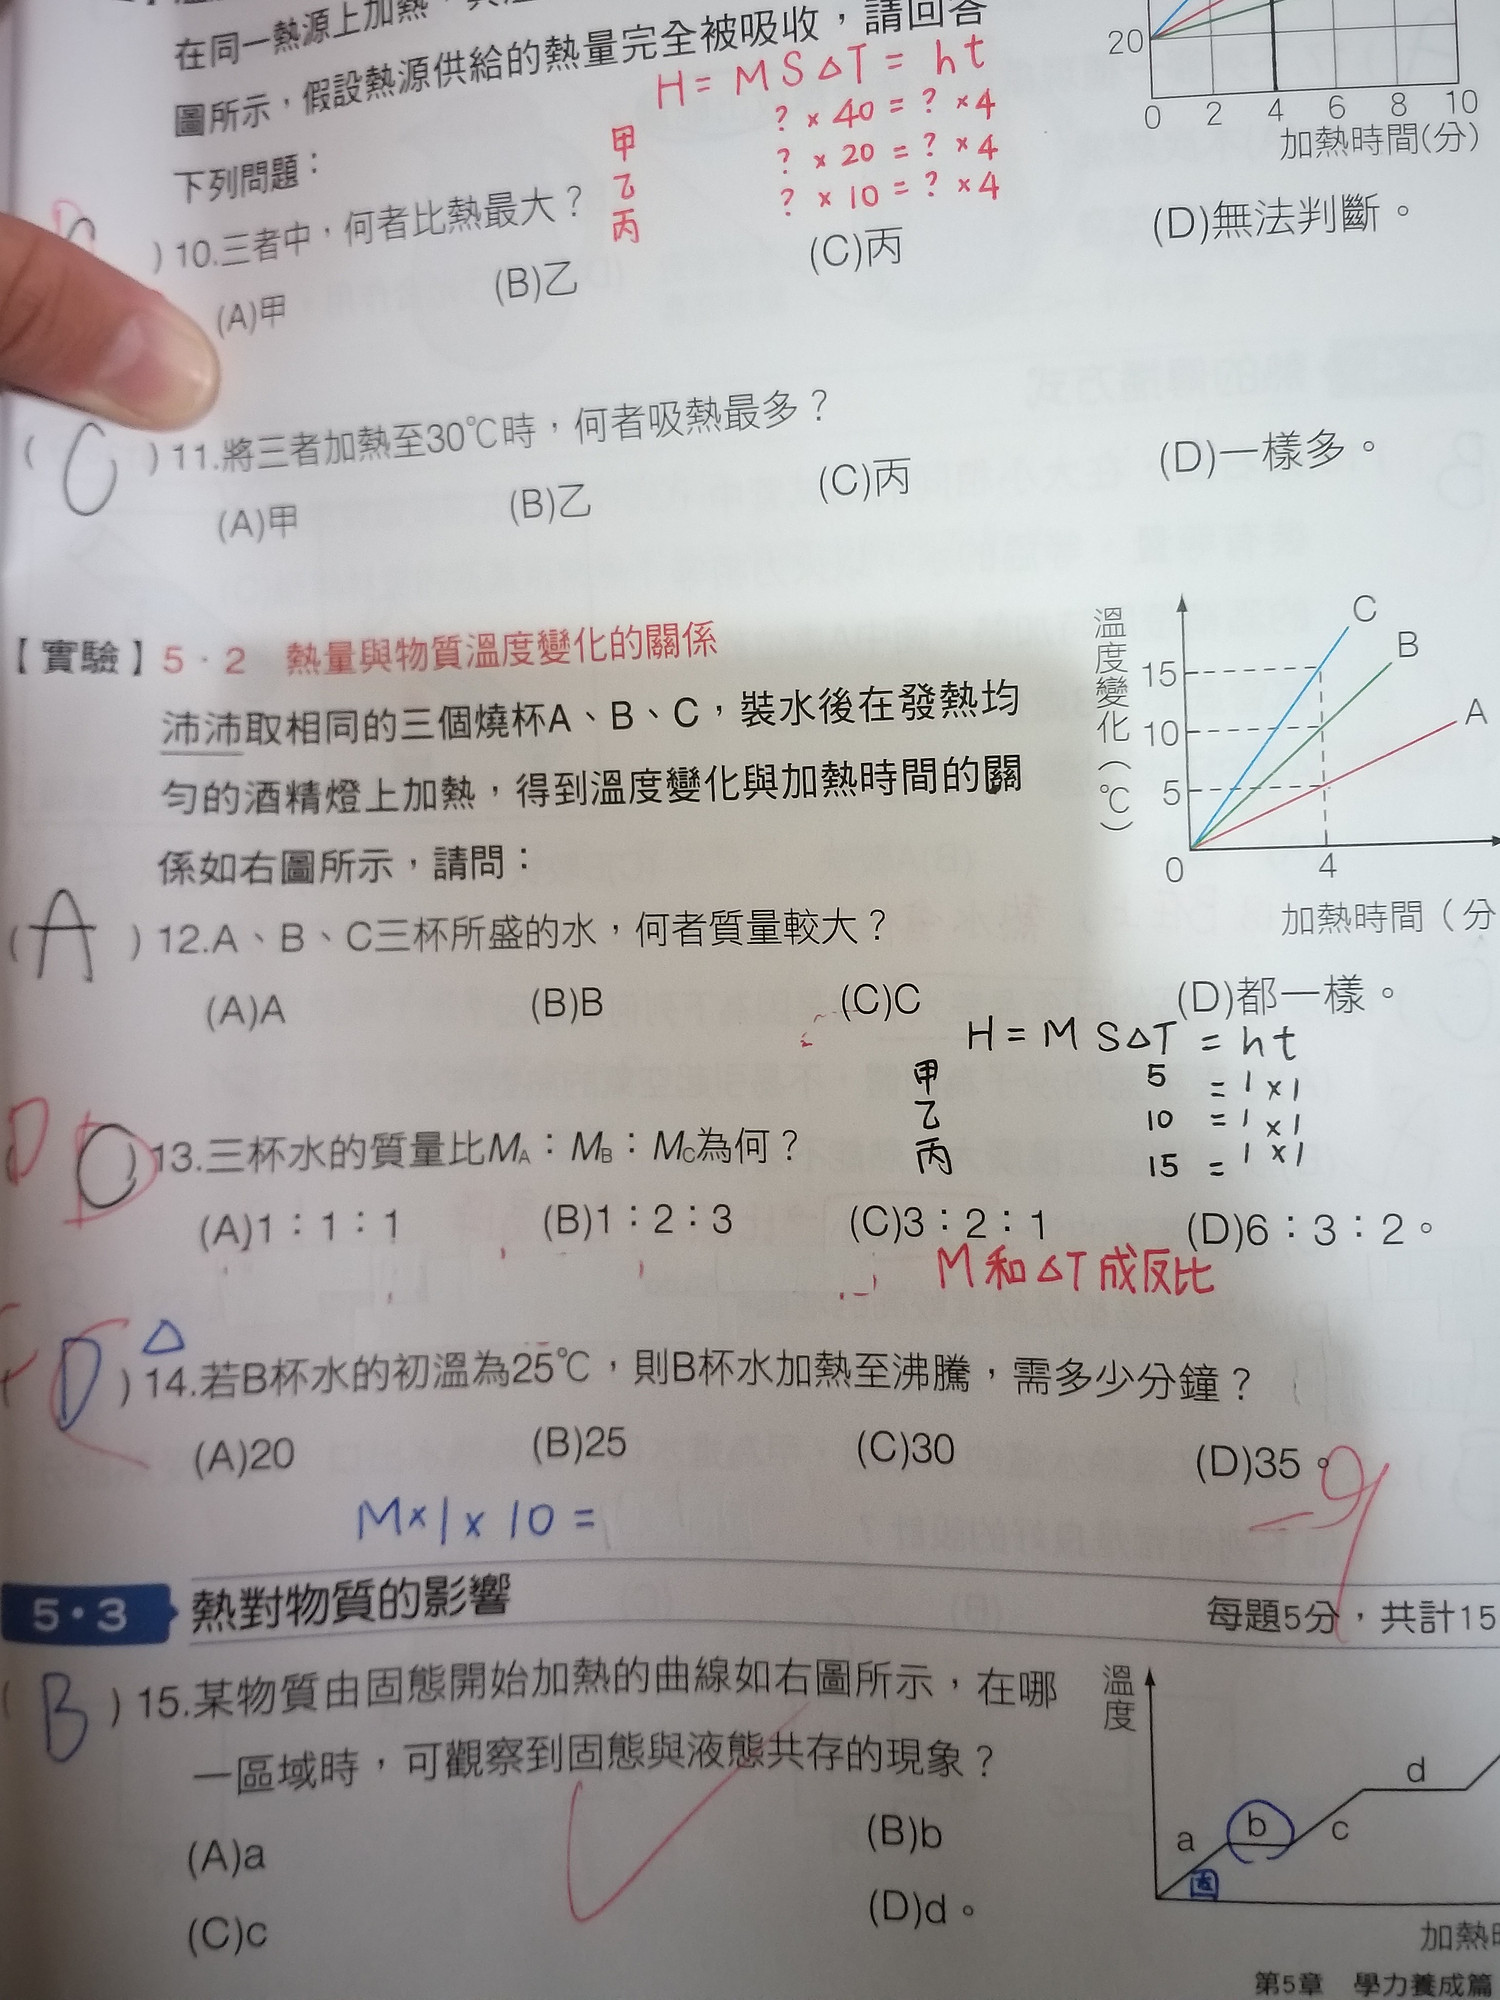 在同一熱源上加熱，
20
圖所示，假設熱源供給的熱量完全被吸收，請回答
H = M S △T = h t
0 2 4 6 8 10
加熱時間(分)
下列問題：
甲 ? × 40 = ? × 4
乙 ? × 20 = ? × 4
丙 ? × 10 = ? × 4
) 10.三者中，何者比熱最大？
(A)甲 (B)乙 (C)丙 (D)無法判斷。
( C ) 11.將三者加熱至30℃時，何者吸熱最多？
(A)甲 (B)乙 (C)丙 (D)一樣多。
【實驗】5・2 熱量與物質溫度變化的關係
沛沛取相同的三個燒杯A、B、C，裝水後在發熱均
勻的酒精燈上加熱，得到溫度變化與加熱時間的關
係如右圖所示，請問：
溫度變化(℃)
C
B
A
15
10
5
0 4
加熱時間（分
( A ) 12.A、B、C三杯所盛的水，何者質量較大？
(A)A (B)B (C)C (D)都一樣。
H = M S△T = h t
甲 5 = 1 × 1
乙 10 = 1 × 1
丙 15 = 1 × 1
D C ) 13.三杯水的質量比MA：MB：MC為何？
(A)1：1：1 (B)1：2：3 (C)3：2：1 (D)6：3：2。
M和△T成反比
D ) △ 14.若B杯水的初溫為25℃，則B杯水加熱至沸騰，需多少分鐘？
(A)20 (B)25 (C)30 (D)35。
-9
M×1×10=
5・3 熱對物質的影響 每題5分，共計15
( B ) 15.某物質由固態開始加熱的曲線如右圖所示，在哪
一區域時，可觀察到固態與液態共存的現象？
(A)a (B)b
(C)c (D)d。
溫度
a b c d
固
加熱
第5章 學力養成篇